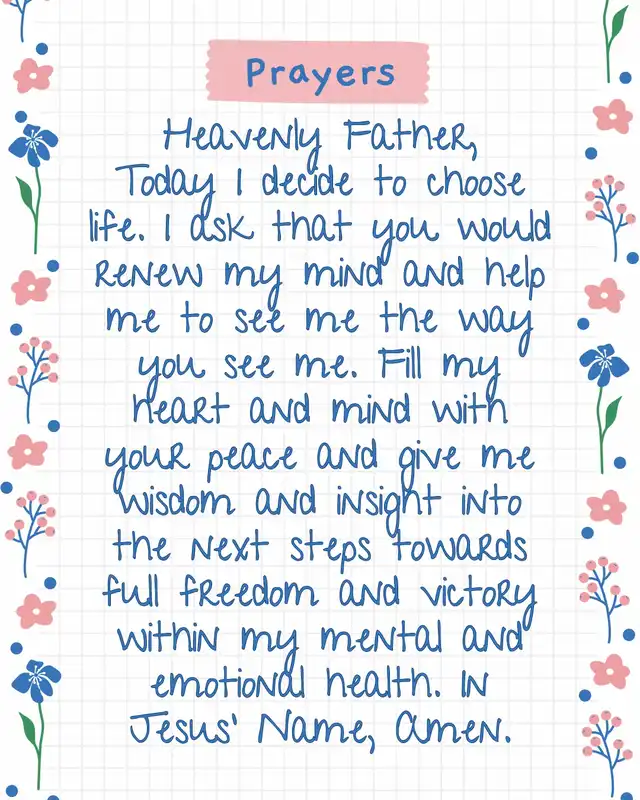 Prayers
Heavenly Father,
Today I decide to choose
life. I ask that you would
renew my mind and help
me to see me the way
you see me. Fill my
heart and mind with
your peace and give me
wisdom and insight into
the next steps towards
full freedom and victory
within my mental and
emotional health. In
Jesus' Name, Amen.